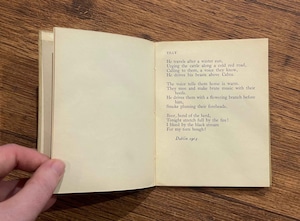 TILLY
He travels after a winter sun,
Urging the cattle along a cold red road,
Calling to them, a voice they know,
He drives his beasts above Cabra.
The voice tells them home is warm.
They moo and make brute music with their
hoofs.
He drives them with a flowering branch before
him,
Smoke pluming their foreheads.
Boor, bond of the herd,
Tonight stretch full by the fire!
I bleed by the black stream
For my torn bough!
Dublin 1904